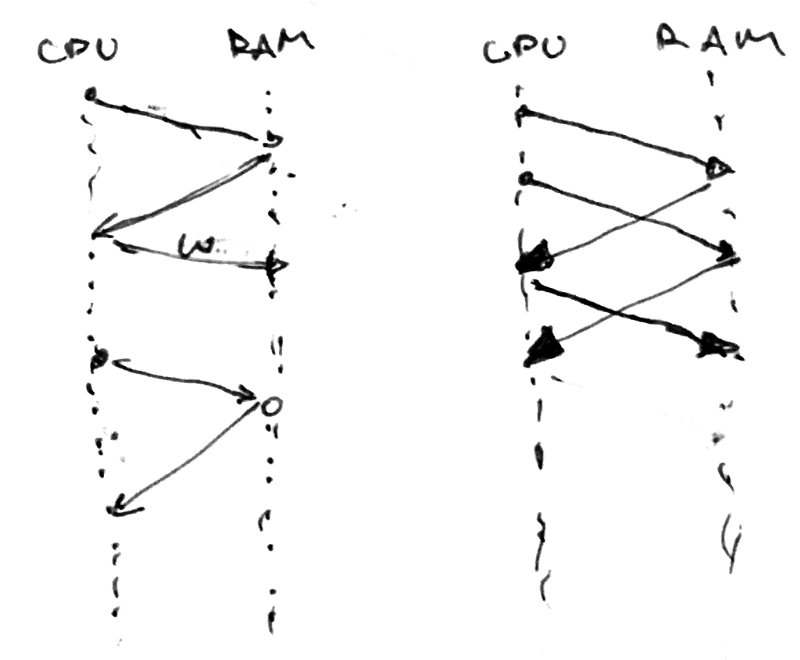 CPU RAM CPU RAM
W